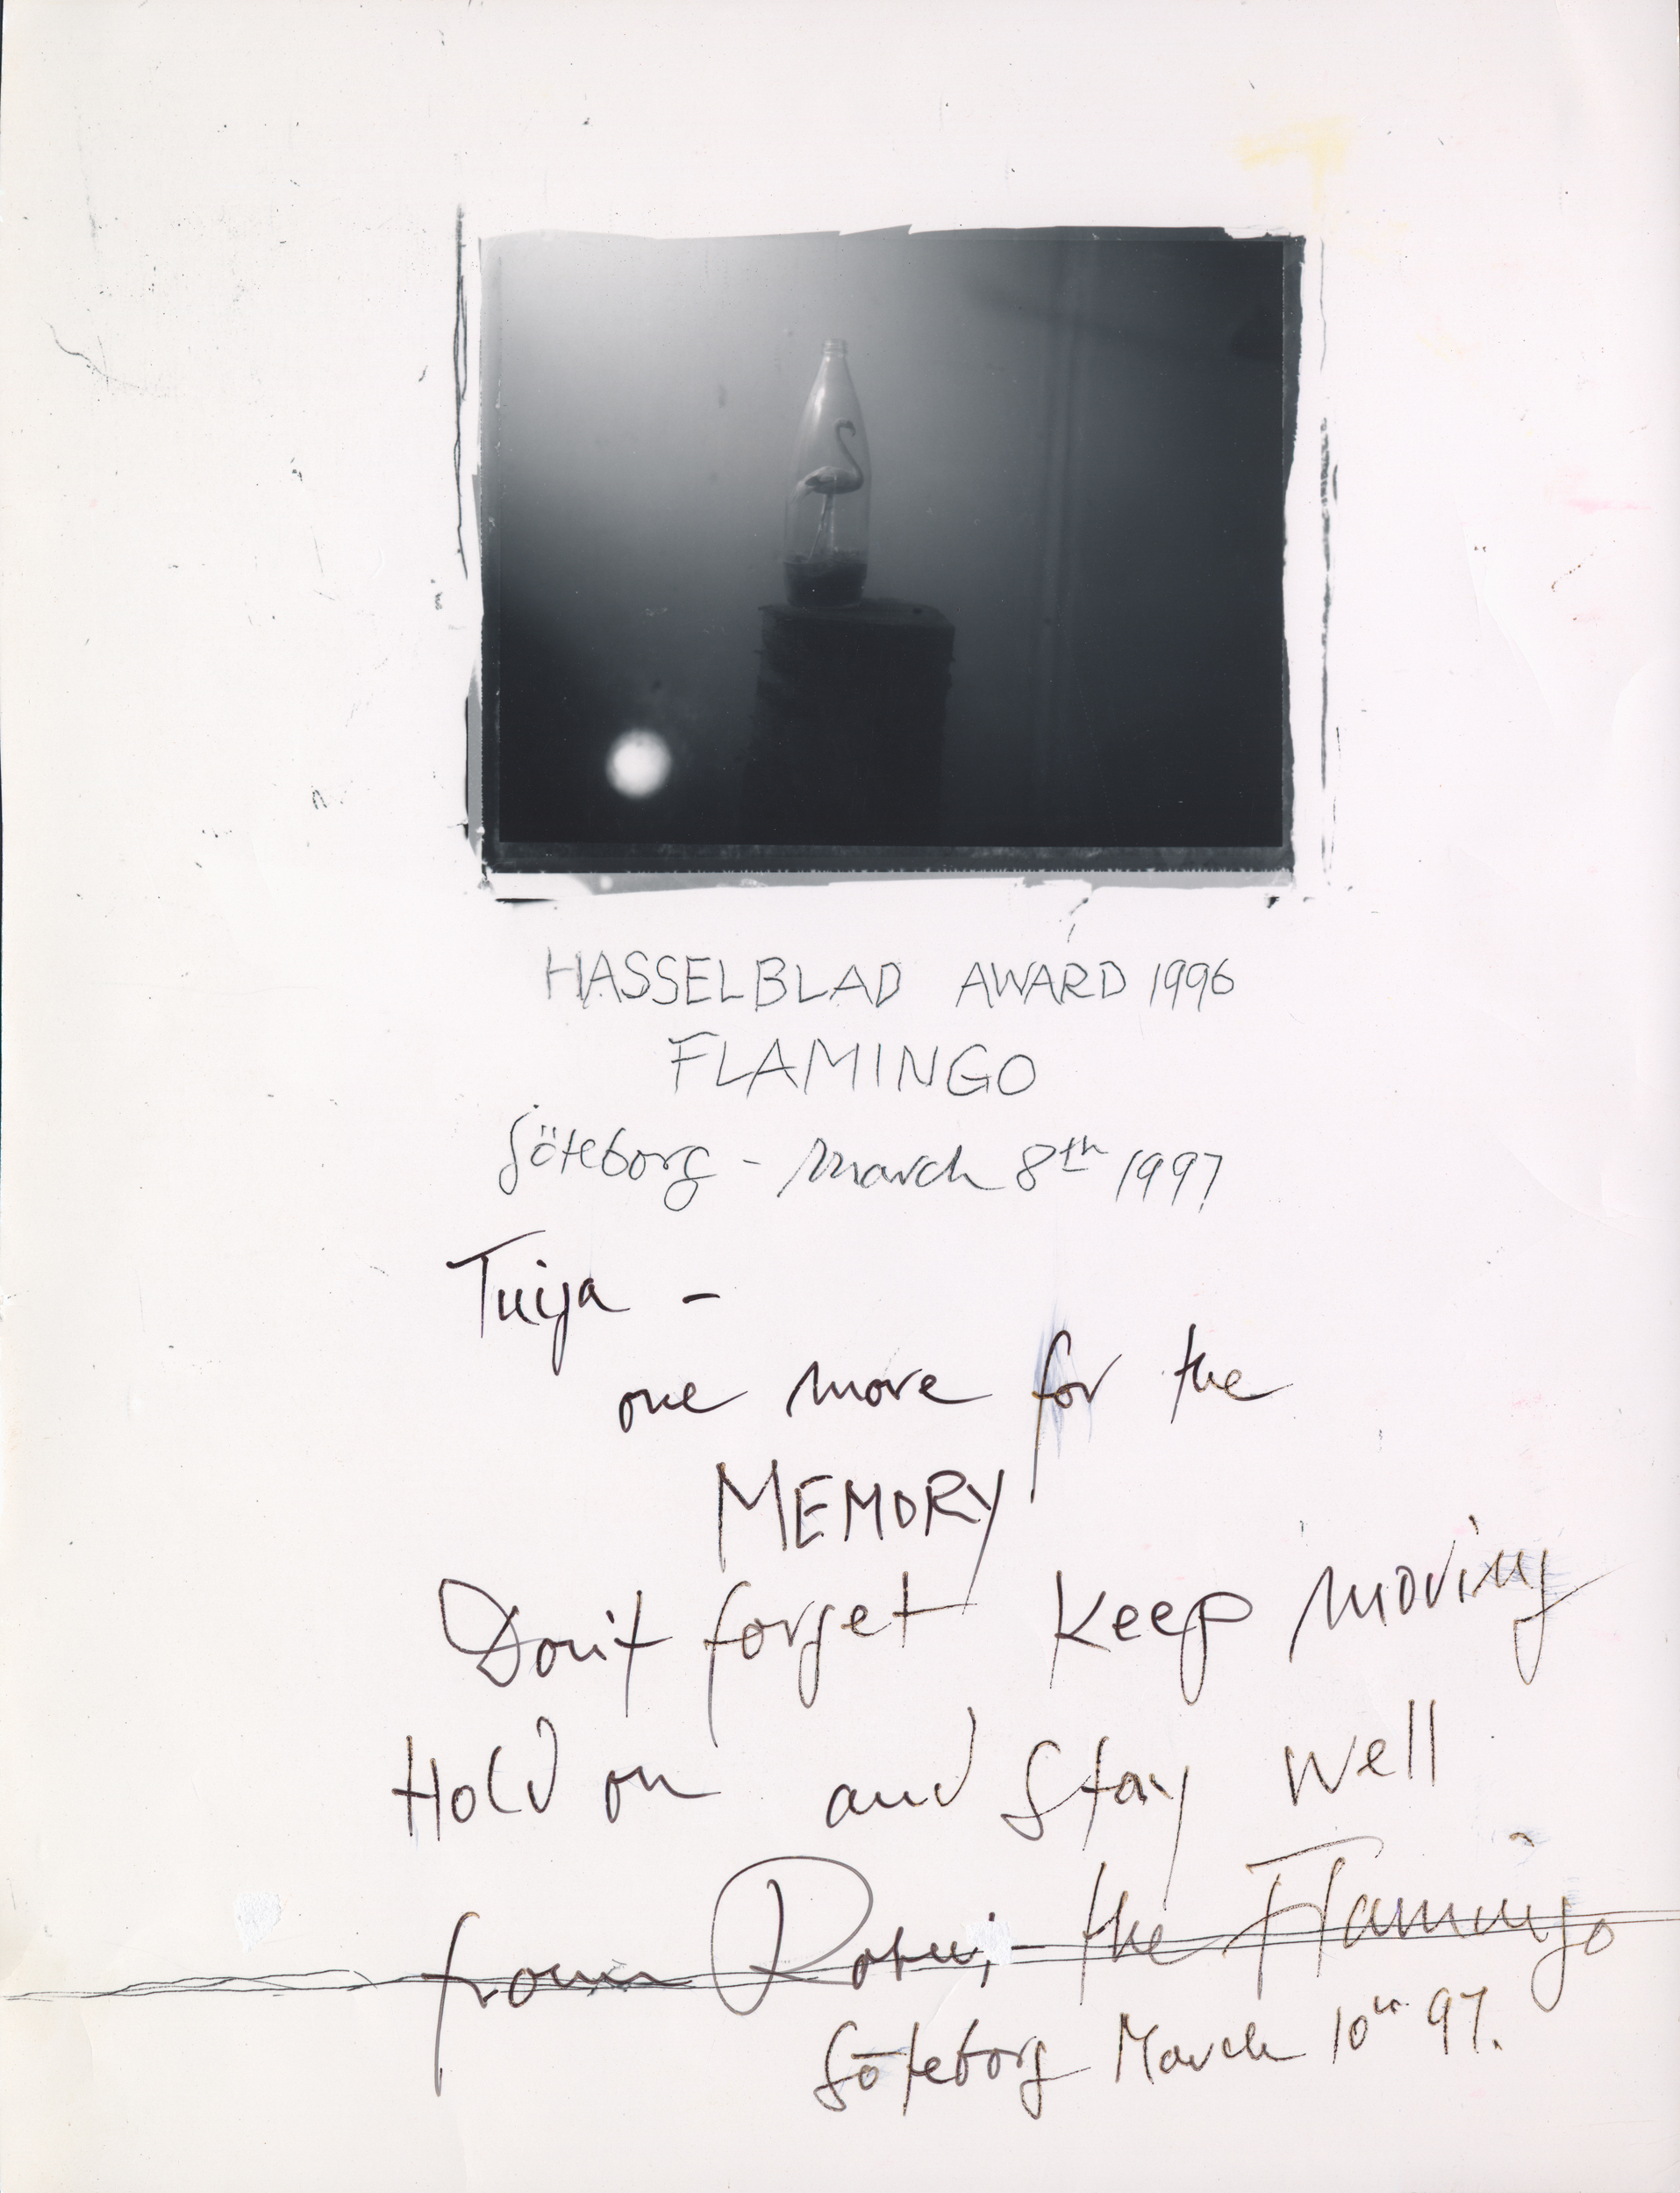 HASSELBLAD AWARD 1996
FLAMINGO
Göteborg - March 8th 1997
Tuija -
one more for the
MEMORY
Don't forget Keep moving
Hold on and Stay well
from - the Flamingo
Göteborg March 10th 97.